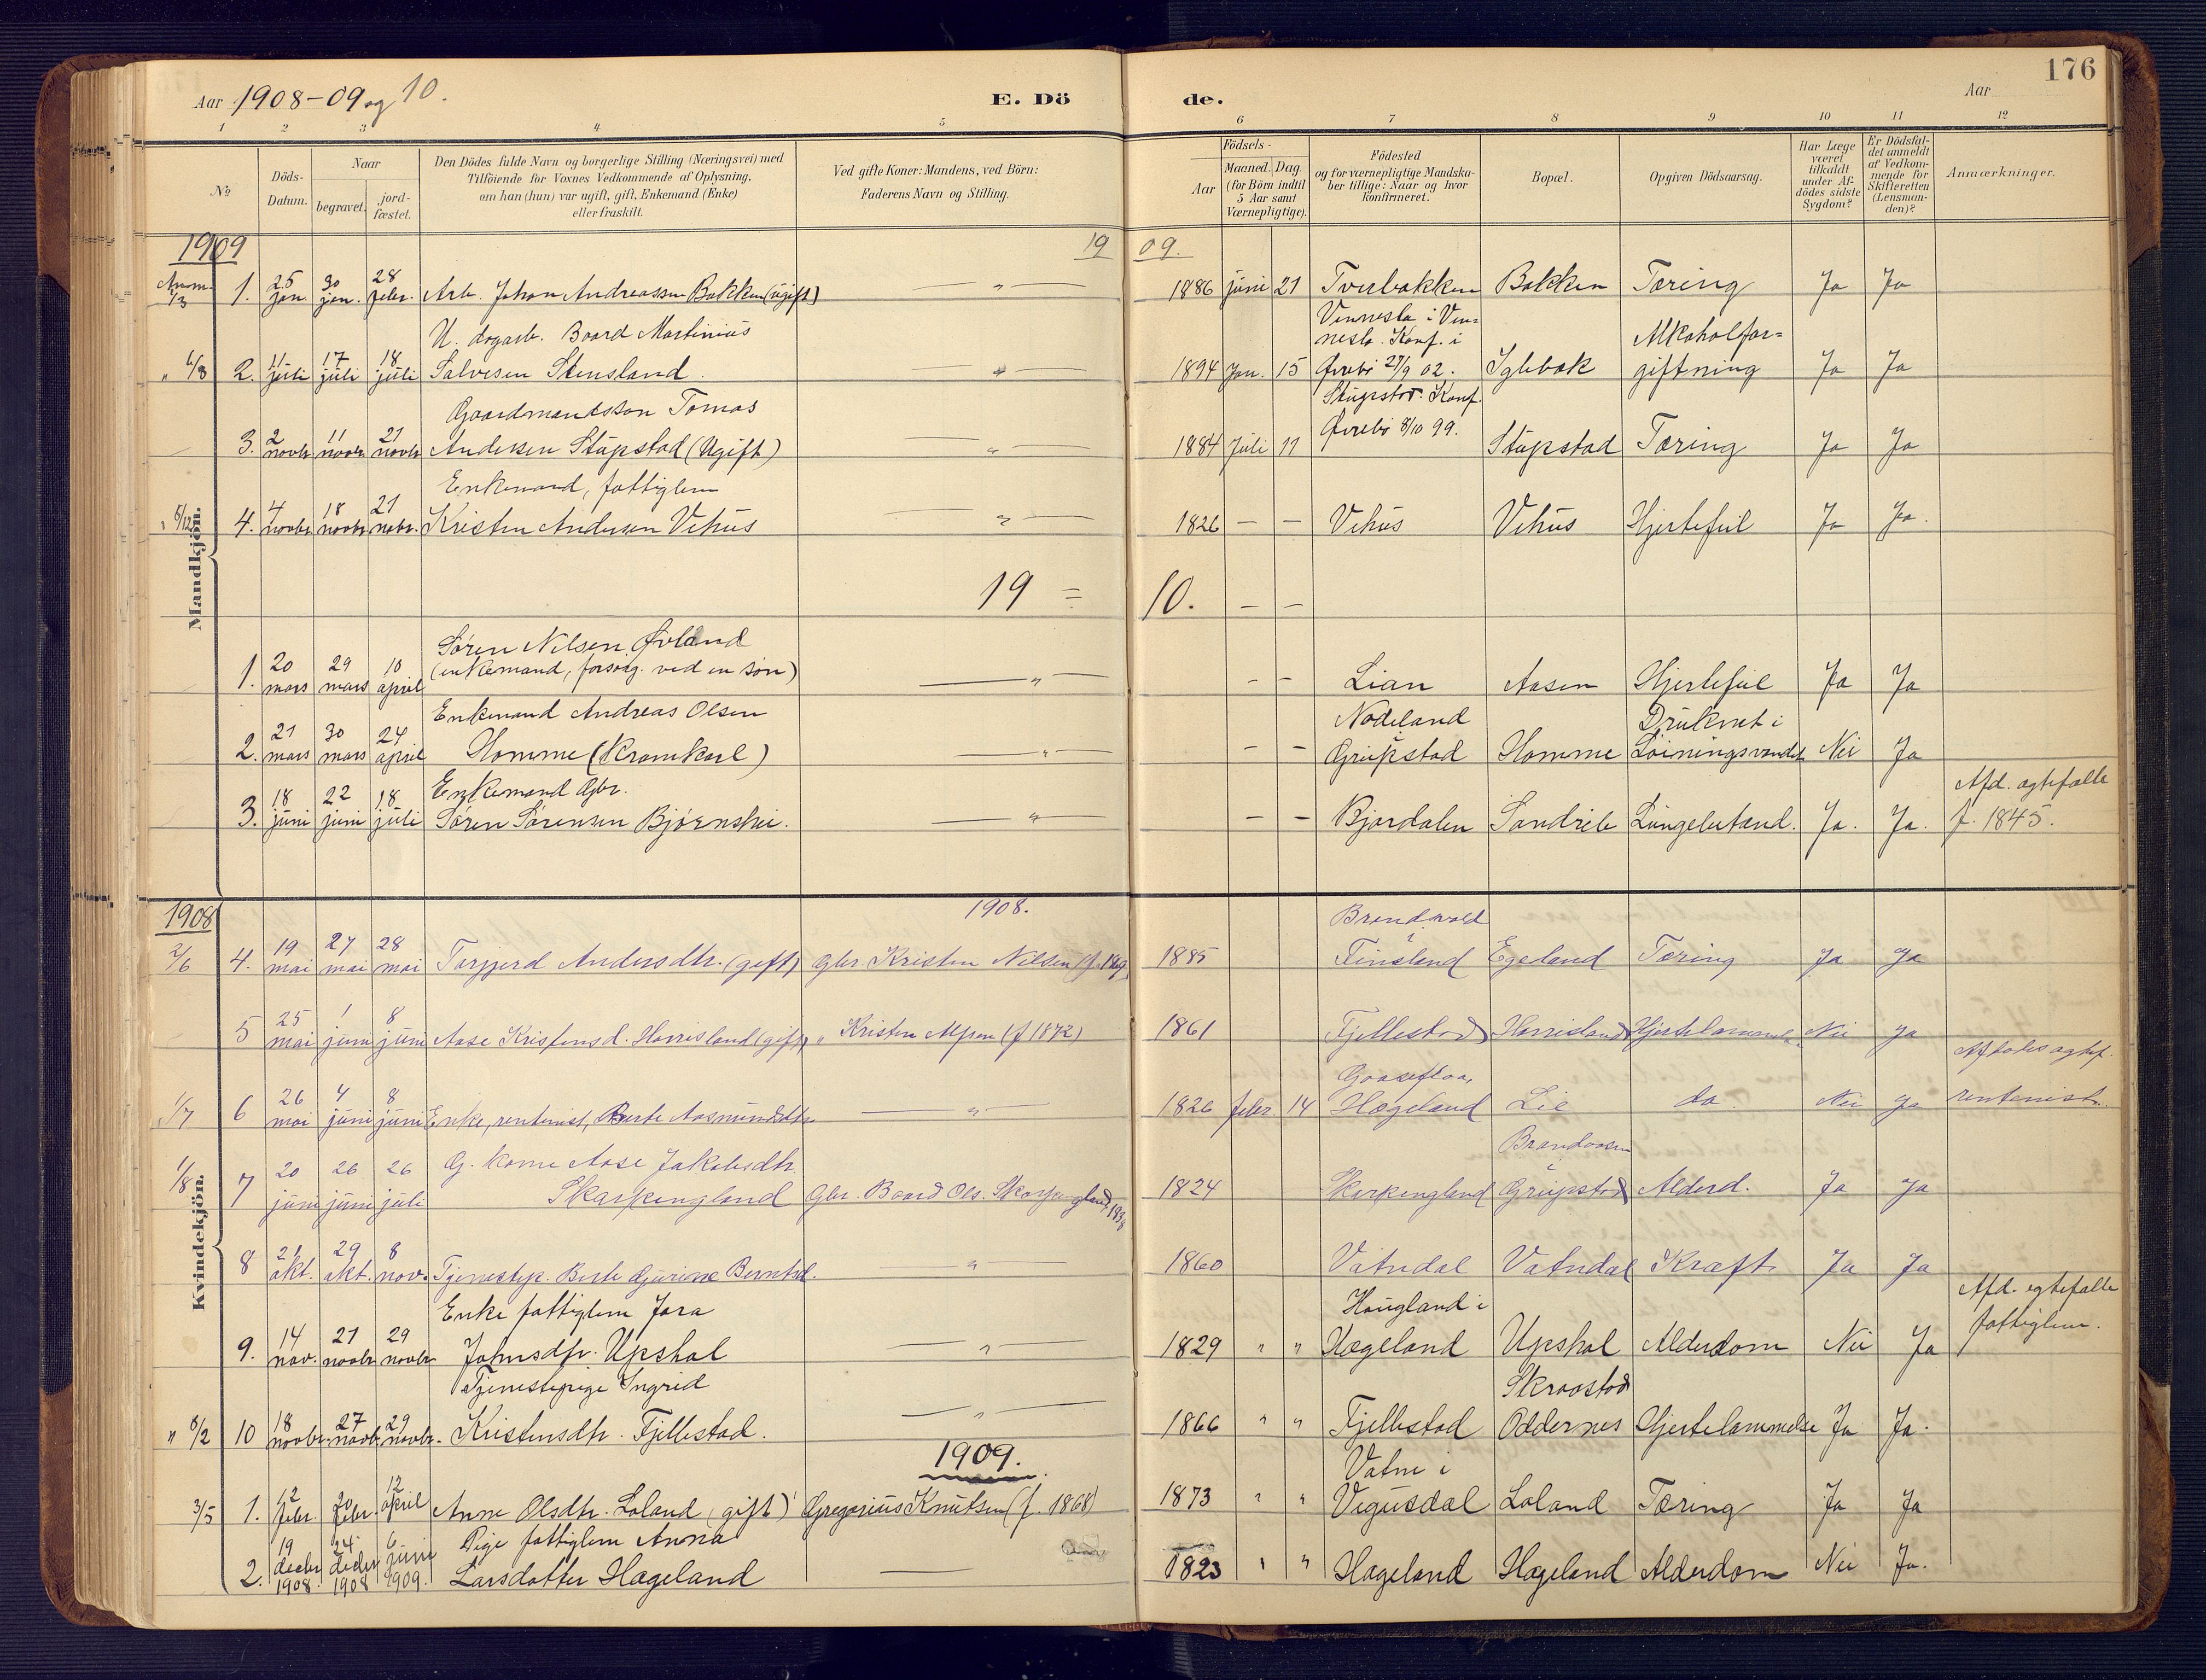 176
Aar 1908-09 og 10.
E. Döde.
Aar
1 2 3 4 5 6 7 8 9 10 11 12
No
Döds-Datum.
Naar
begravet.
jord-fæstet.
Den Dödes fulde Navn og borgerlige Stilling (Næringsvei) med
Tilföiende for Voxnes Vedkommende af Oplysning,
om han (hun) var ugift, gift, Enkemand (Enke)
eller fraskilt.
Ved gifte Koner: Mandens, ved Börn:
Faderens Navn og Stilling.
Födsels-
Aar
Maaned. Dag.
(for Börn indtil
5 Aar samt
Værnepligtige).
Födested
og for værnepligtige Mandska-
ber tillige: Naar og hvor
konfirmeret.
Bopæl.
Opgiven Dödsaarsag.
Har Læge
været
tilkaldt
under Af-
dödes sidste
Sygdom?
Er Dödsfal-
det anmeldt
af Vedkom-
mende for
Skifteretten
(Lensman-
den)?
Anmærkninger.
Mandkjön.
1909
1909.
Anm. 1/3 1. 25 jan. 30 jan. 28 febr. Arb. Johan Andreassen Bakken (ugift) " 1886 juni 21 Tverbakken Bakken Tæring Ja Ja
U. dagarb. Baard Martinius Vennesla i Ven-
nesla. Konf. i Alkoholfor-
" 6/8 2. 11 juli 17 juli 18 juli Salvesen Stensland. " 1894 Jan. 15 Øvrebø 27/9 02. Iglebæk giftning Ja Ja
Gaardmandssøn Tomas Stupstad. Konf.
3. 2 novbr 11 novbr 21 novbr Andersen Stupstad (Ugift) " 1884 Juli 11 Øvrebø 8/10 99. Stupstad Tæring Ja Ja
Enkemand, fattiglem
" 6/12 4. 4 novbr 18 novbr 21 nobr. Kristen Andersen Vehus " 1826 - - Vehus Vehus Hjertefeil Ja Ja.
19 = 10. - -
Søren Nilsen Øvland
1. 20 mars 29 mars 10 april (enkemand, forsørg. ved en søn) " - - Lian Aasen Hjertefeil Ja Ja
Enkemand Andreas Olsen Nodeland Druknet i
2. 21 mars 30 mars 24 april Homme (Kramkarl) " - - Grupstad Homme Loiningsvandet Nei Ja
Enkemand Gbr. Afd. ægtefælle
3. 18 juni 22 juni 18 juli Søren Sørensen Bjørnshei. " - - Bjordalen Sandrib Lungebetænd. Ja. Ja. f. 1845.
Kvindekjön.
1908
1908.
2/6 4. 19 mai 27 mai 28 mai Torjerd Andersdtr. (gift) gbr. Kristen Nilsen 1885 Finsland Egeland Tæring Ja Ja
5 25 mai 1 juni 8 juni Aase Kristensd. Harrisland (gift) " Kristen (f 1872) 1861 Fjellestad Harrisland Hjertelammelse Nei Ja
Afdødes ægtef.
1/7 6 26 mai 4 juni 8 juni Enke, rentenist, Berte Aasmundsdtr " 1826 febr 14 Hægeland Lie do. Nei Ja rentenist.
G. kone Aase Jakobsdtr. Brandaasen i
1/8 7 20 juni 26 juni 26 juli Skarpengland Gbr. Baard Ols. Skarpengland, 1838 1824 Skarpengland Grupstad Alderd. Ja Ja
8 21 okt. 29 okt. 8 nov. Tjenestep. Berte Gurine Berntsd. " 1860 Vatndal Vatndal Kræft Ja Ja
Enke fattiglem Jora Haugland i Afd. egtefælle
9. 14 nov. 21 novbr 29 novbr Johnsdtr. Upshal " 1829 " " Hægeland Upshal Alderdom Nei Ja fattiglem.
Tjenestepige Ingrid Skraastad
" 8/2 10 18 novbr. 27 novbr 29 novbr. Kristensdtr. Fjellestad. " 1866 " " Fjellestad Oddernes Hjertelammelse Ja Ja.
1909.
Vatne i
3/5 1. 12 febr. 20 febr. 12 april Anne Olsdtr. Loland (gift) Gregorius Knutsen (f. 1868) 1873 " " Vegusdal Loland Tæring Ja Ja
Pige fattiglem Anna
2. 19 decbr 1908. 24 decbr 1908 6 juni 1909. Larsdatter Hægeland 1823 " " Hægeland Hægeland Alderdom Nei Ja.